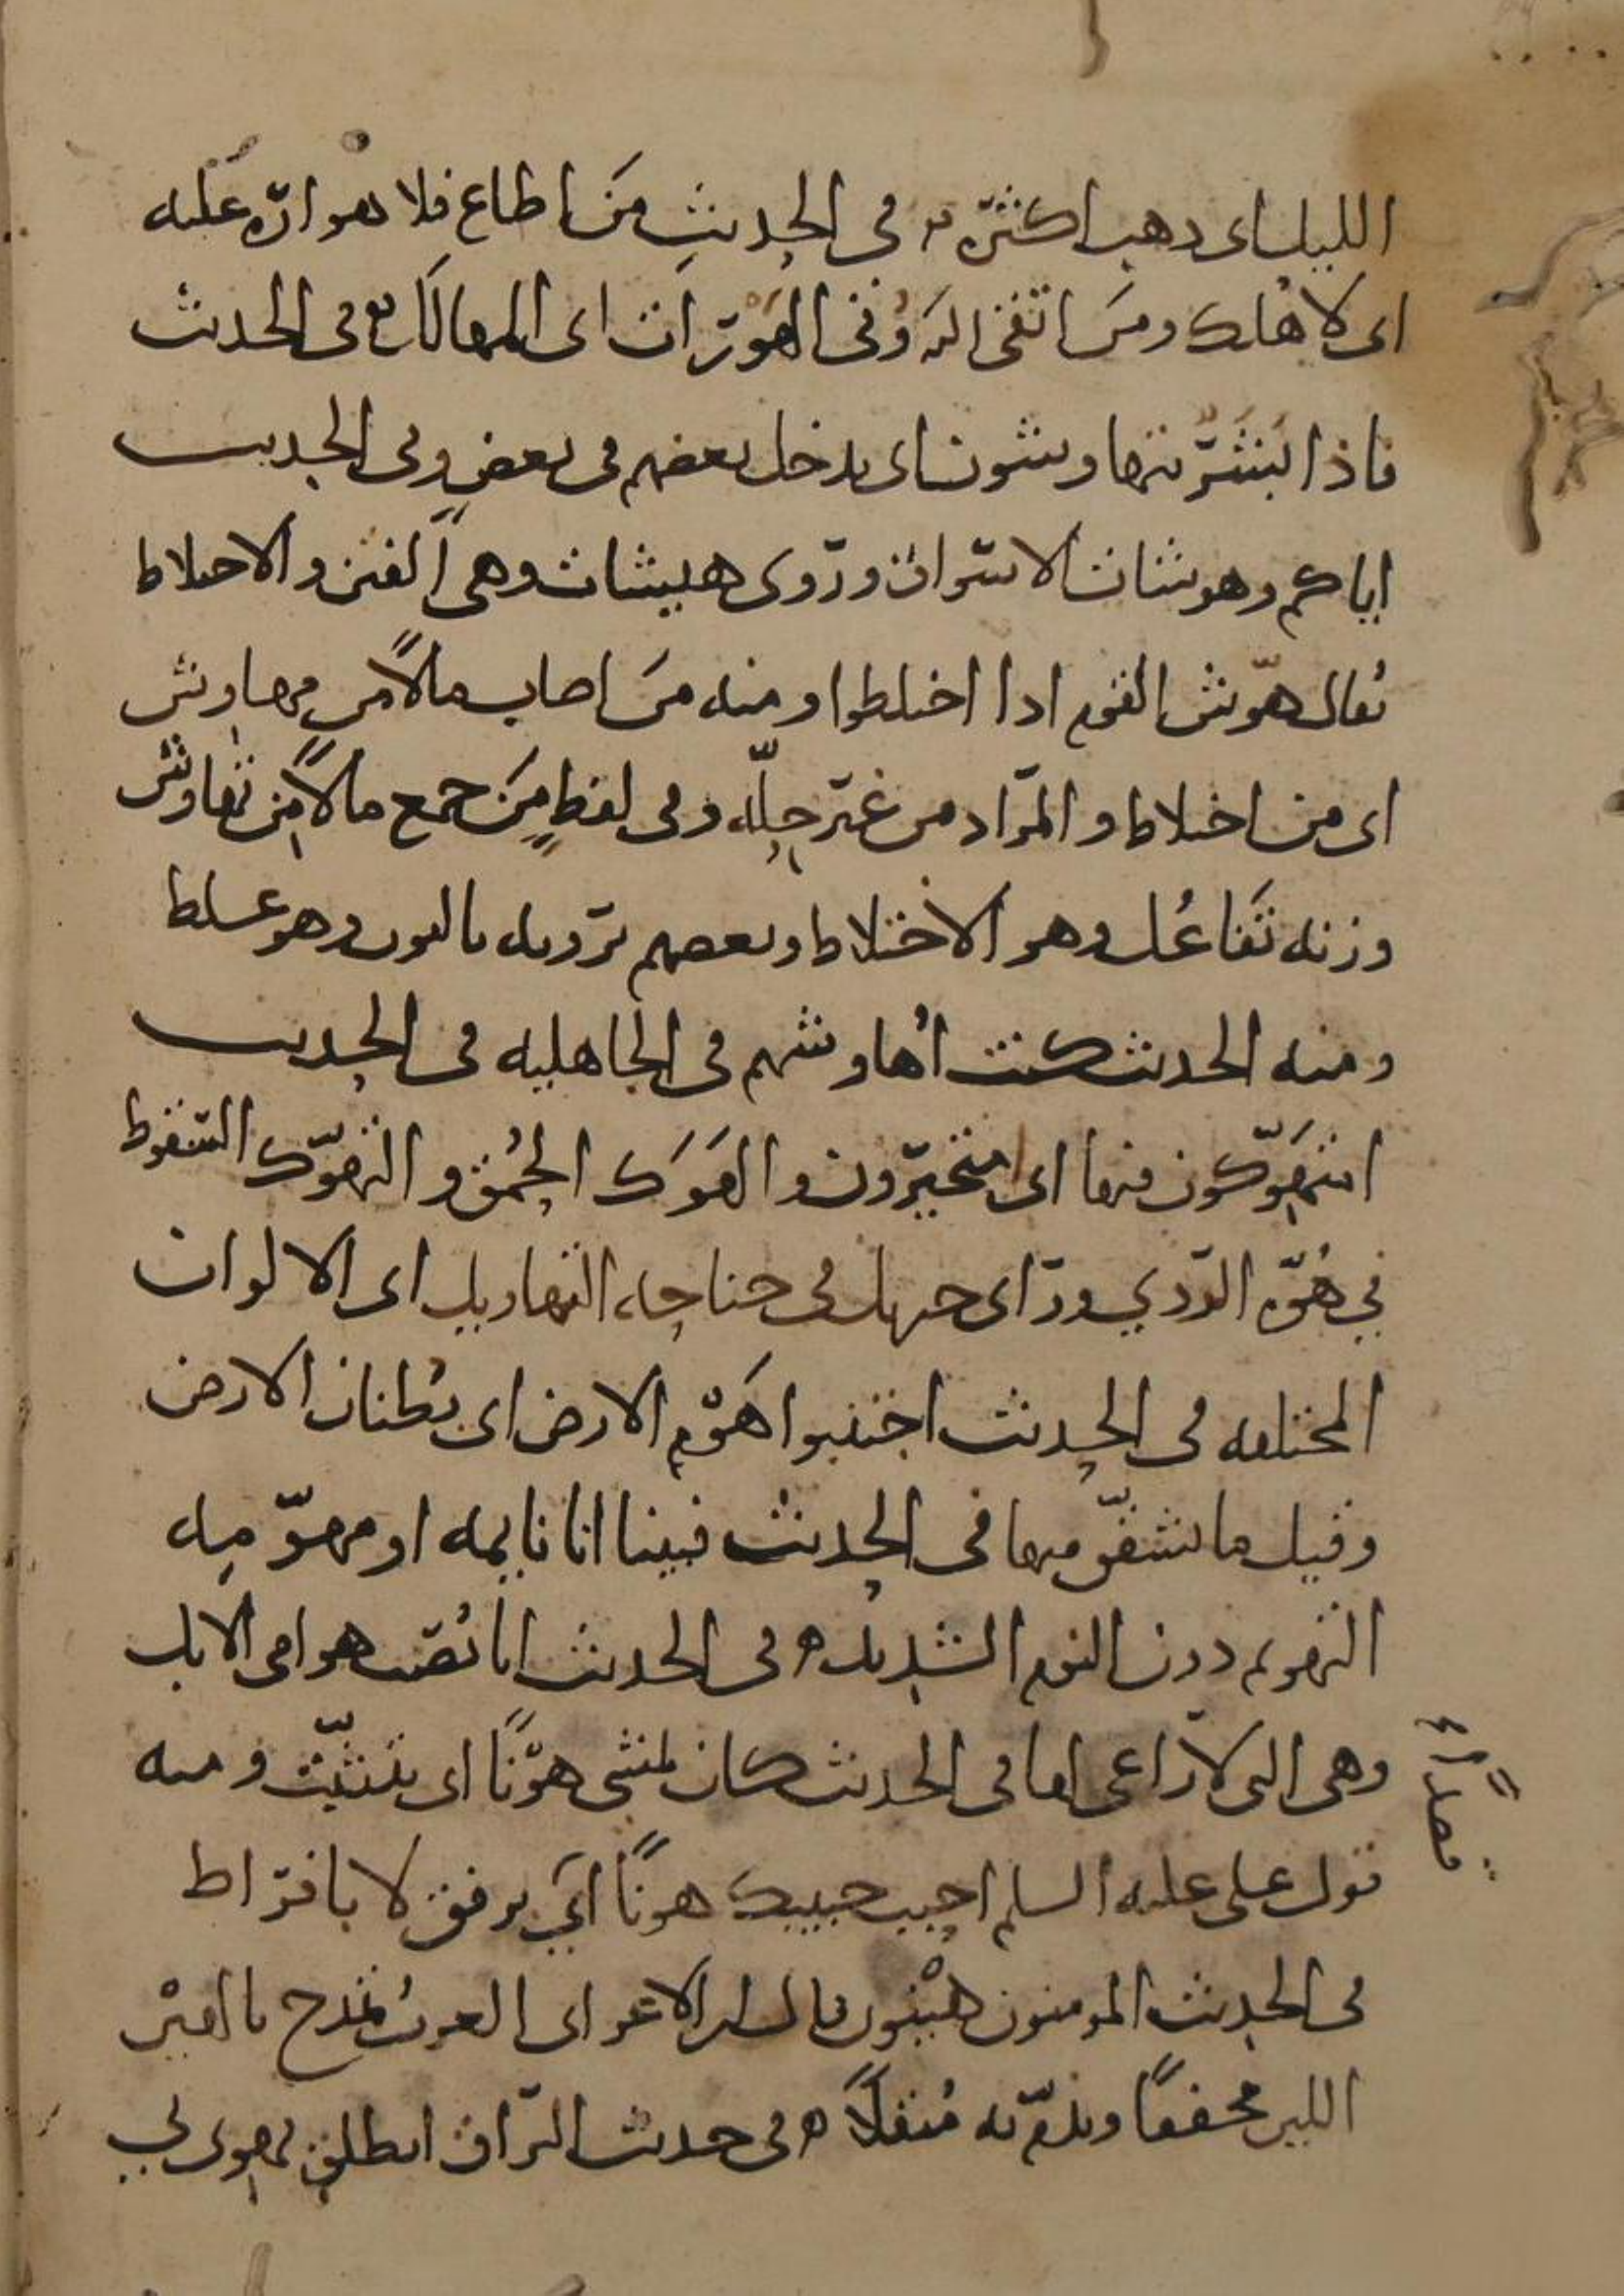 الليل اى ذهب اكثره في الحديث من اطاع فلا هوارة عليه
اى لا هلك ومن اتقى الله وقى الهورات اى المهالك في الحديث
فاذا بشر يتهاوشون اى يدخل بعضهم في بعض وفى الحديث
اياكم وهوشات الاسواق وروى هيشات وهى الفتن والاختلاط
يقال هوّش القوم اذا اختلطوا ومنه من اصاب مالاً من مهاوش
اى من اختلاط والمراد من غير حِلّه وفى لفظٍ من جمع مالاً من تهاوش
وزنه تَفاعُل وهو الاختلاط وبعضهم يرويه بالنون وهو غلط
ومنه الحديث كنت اُهاوشهم في الجاهلية في الحديث
امتهوّكون فيها اى متحيّرون والهَوَك الحُمق والتهوّك السقوط
في هُوّة الردي ورأى جبريل في جناحه التهاويل اى الالوان
المختلفه في الحديث اجتنبوا هَوْم الارض اى بُطنان الارض
وقيل ما تشقّق منها في الحديث فبينا انا نايمه او مهوّمه
التهويم دون النوم الشديد في الحديث انا نُصيب هوامى الابل
وهى التى لا راعى لها في الحديث كان يمشى هونًا اى بتثبّت ومنه
قول على عليه السلم احبب حبيبك هونًا اى برفق لا بافراط
في الحديث المومنون هَيْنون قال ابن الاعرابى العرب تمدح بالهيْن
اللين مخففًا وتذمّ به مُثقلاً في حديث البراق انطلق يهوى بي